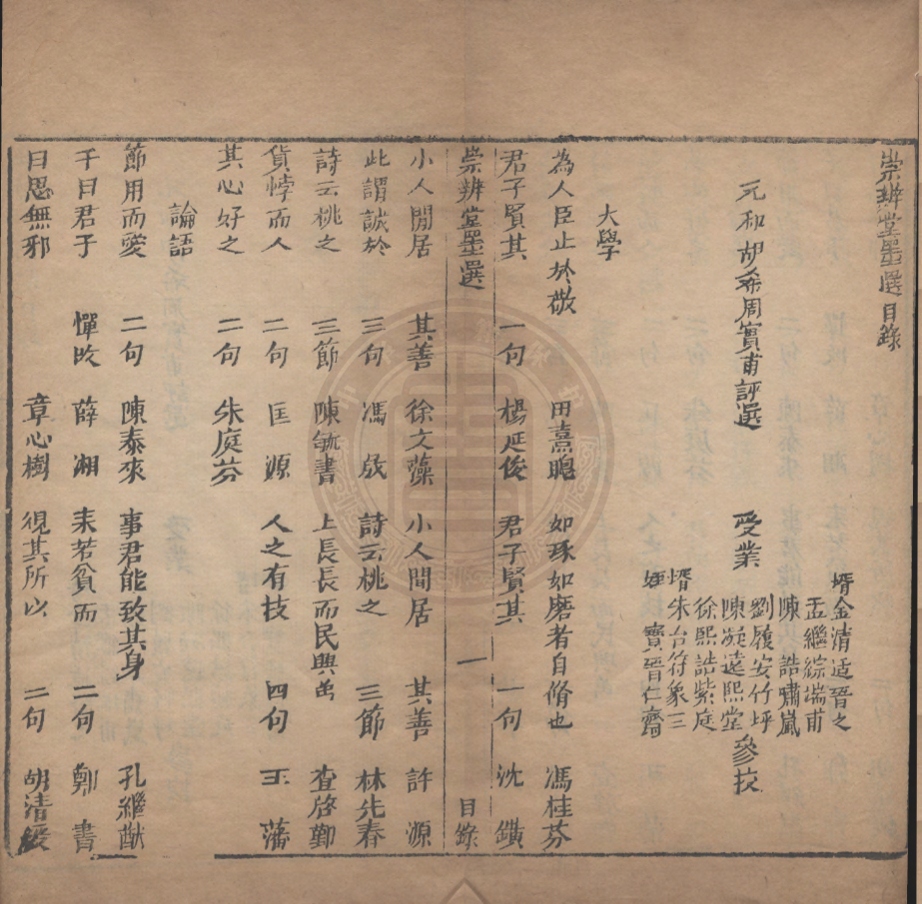 崇辨堂墨選目錄
元和胡希周實甫評選
受業
壻金清适晉之
孟繼綜瑞甫
陳誥嘯嵐
劉履安竹坪
陳凝遠熙堂
徐熙誥紫庭
壻朱台符象三
寶晉仁齋
參挍
大學
為人臣止於敬 田熹聰 如琢如磨者自脩也 馮桂芬
君子賢其 一句 楊延俊 君子賢其 一句 沈鐄
崇辨堂墨選 一 目錄
小人閒居 其善 徐文藻 小人閒居 其善 許源
此謂誠於 三句 馮 詩云桃之 三節 林先春
詩云桃之 三節 陳毓書 上長長而民興 查啓
貨悖而人 二句 匡源 人之有技 四句 王藩
其心好之 二句 朱庭芬
論語
節用而愛 二句 陳泰來 事君能致其身 孔繼猷
千日君子 憚改 薛湘 未若貧而 二句 鄭書
曰思無邪 章心樹 視其所以 二句 胡清綬